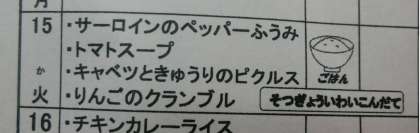 月
15 ・サーロインのペッパーふうみ
・トマトスープ
か ・キャベツときゅうりのピクルス
火 ・りんごのクランブル
ごはん
そつぎょういわいこんだて
16 ・チキンカレーライス